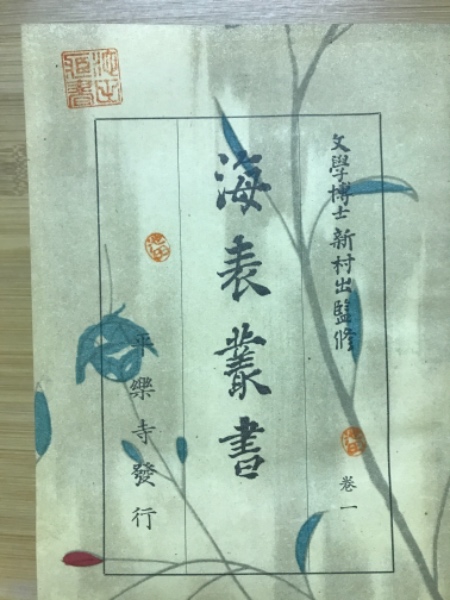 文學博士 新村出監修
卷一
海表叢書
平樂寺發行